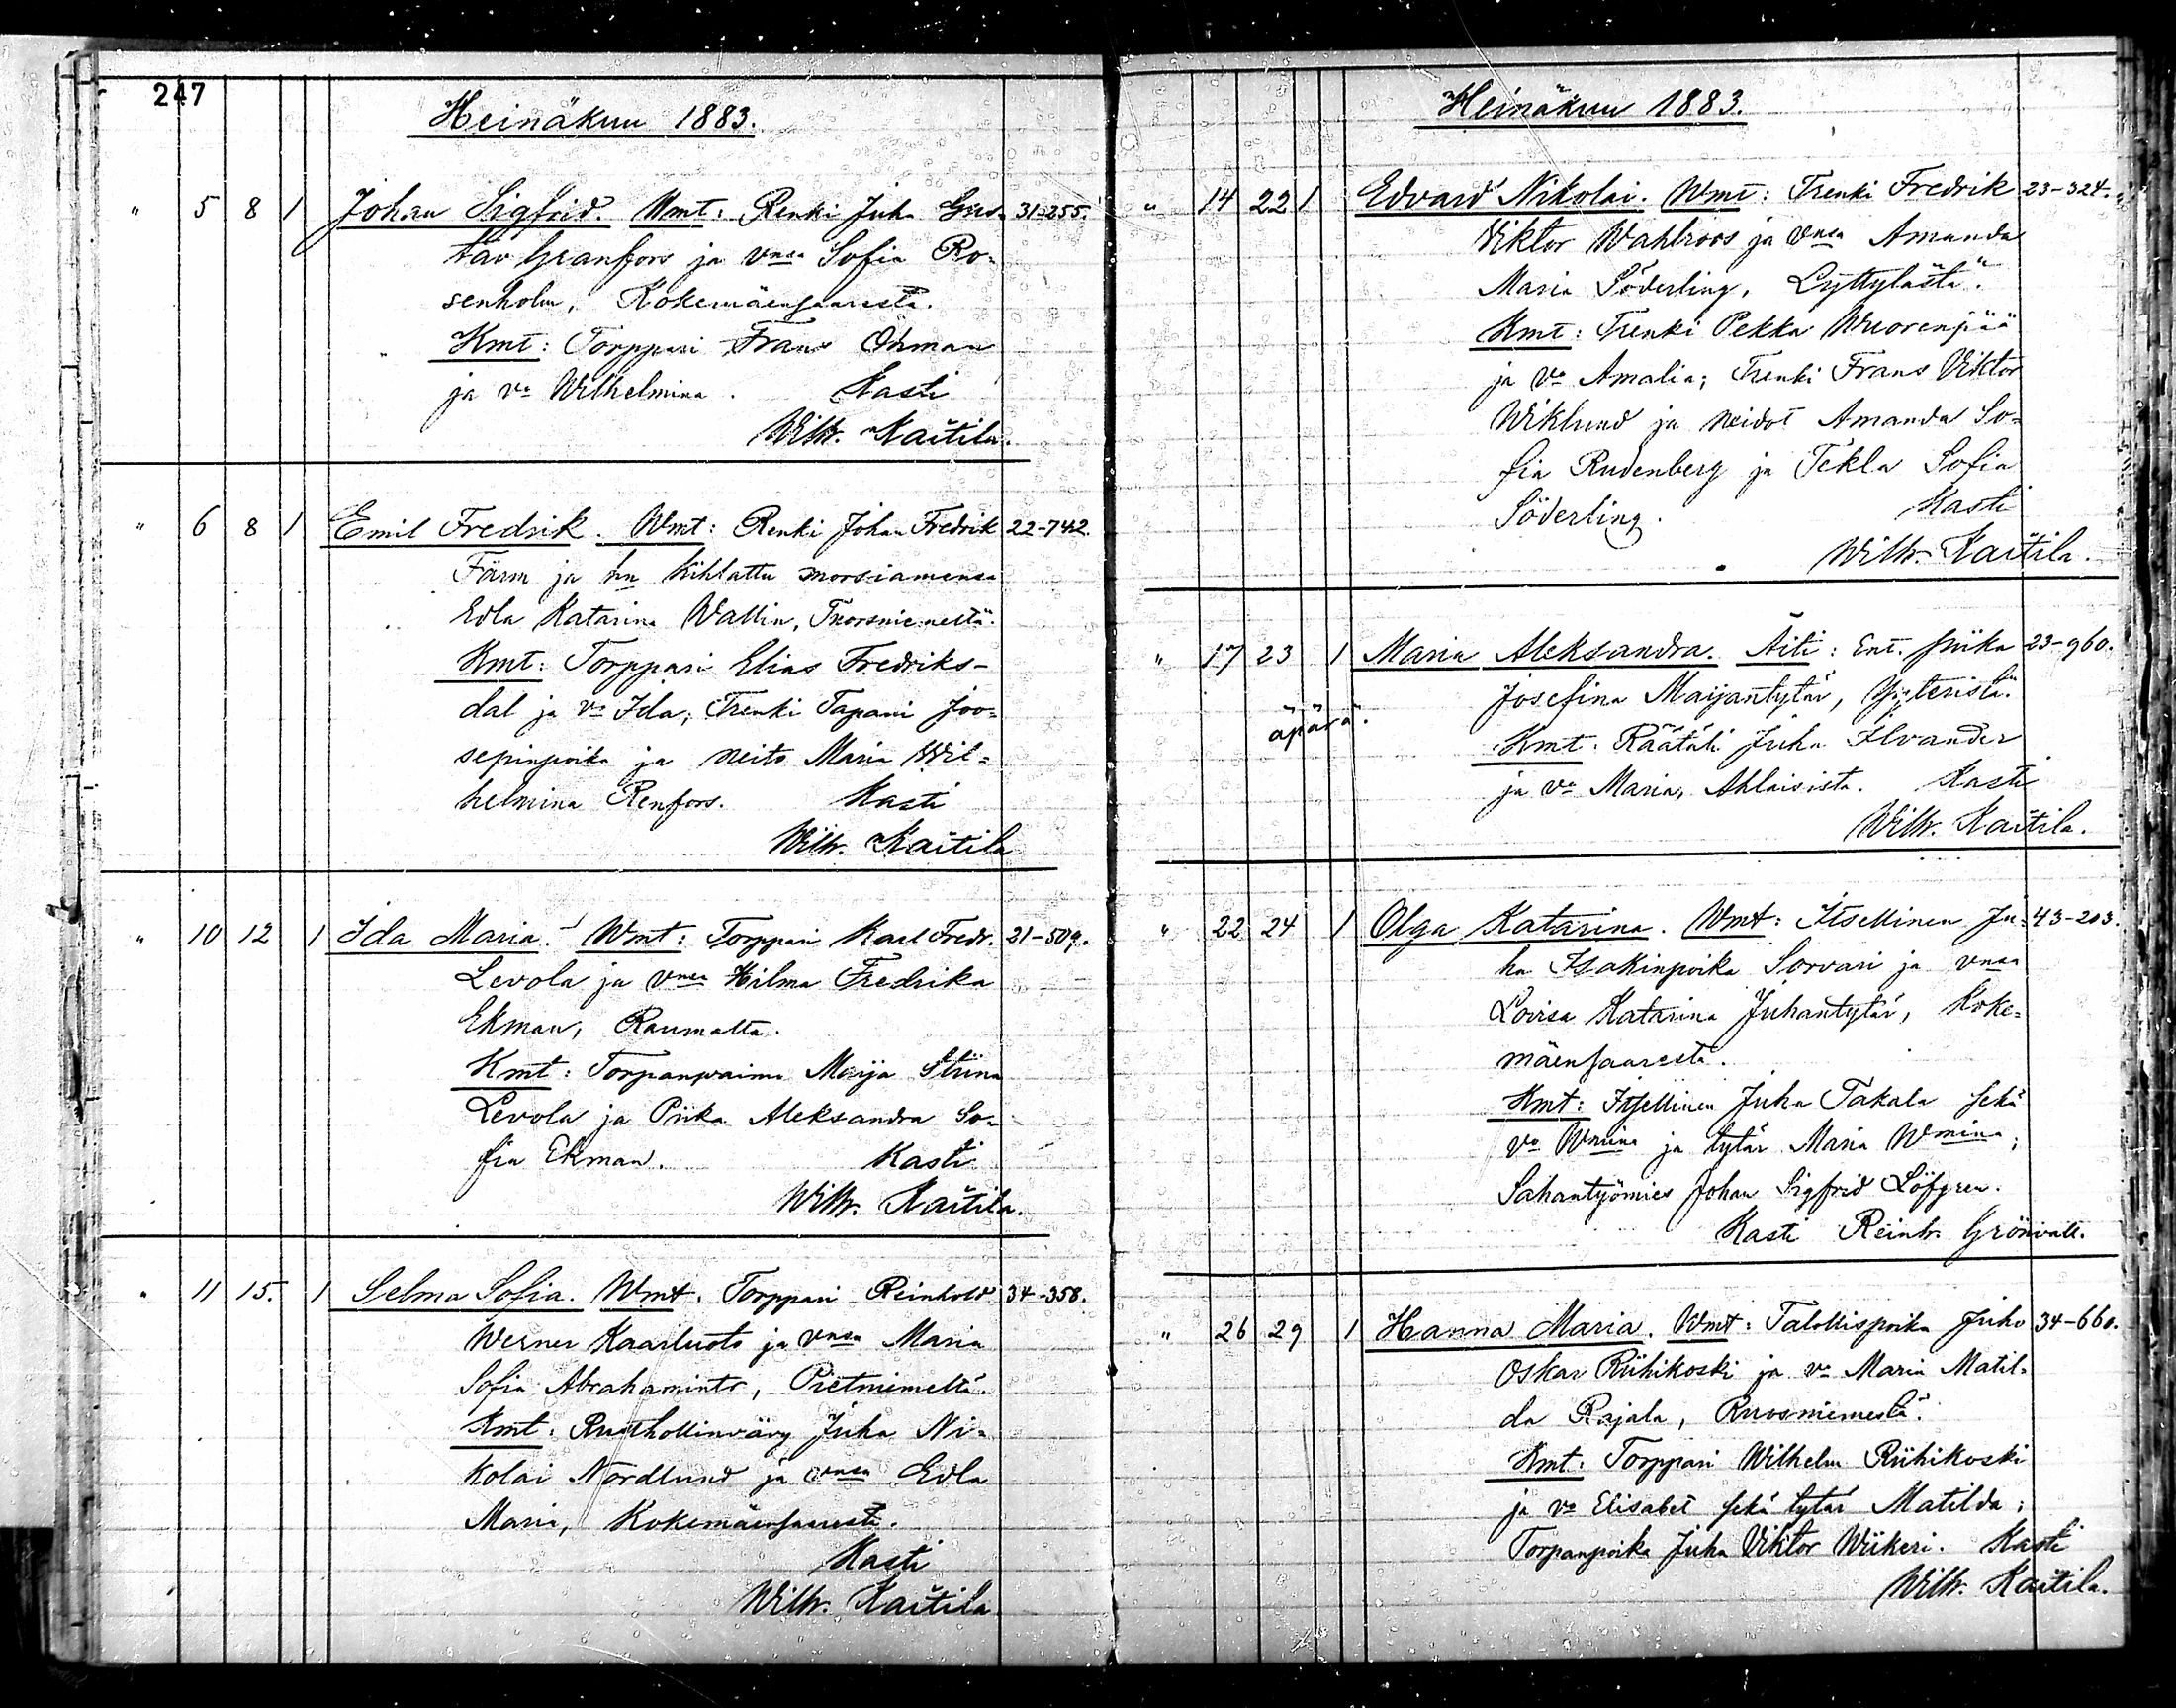 247
Heinäkuu 1883.
" 5 8 1 Johan Sigfrid. Wmt: Renki Juha Gus= 31-255.
tav Granfors ja vnsa Sofia Ro=
senholm, Kokemäensaaresta.
Kmt: Torppari Frans Öhman
ja va Wilhelmina. Kasti
Wilh. Kaitila.
" 6 8 1 Emil Fredrik. Wmt: Renki Johan Fredrik 22-742.
Färm ja hn kihlattu morsiamensa
Edla Katarina Wallin,
Kmt: Torppari Elias Fredriks-
dal ja va Ida; Trenki Tapani Joo=
sepinpoika ja neito Maria Wil=
helmina Renfors. Kasti
Wilh. Kaitila
" 10 12 1 Ida Maria. Wmt: Torppari Karl Fredr. 21-509.
Levola ja vnsa Hilma Fredrika
Ekman, Raumalta.
Kmt: Torpanwaimo Maija Stiina
Levola ja Piika Aleksandra So=
fia Ekman. Kasti
Wilh. Kaitila.
" 11 15. 1 Selma Sofia. Wmt. Torppari Reinhold 34-358.
Werner Kaarluoto ja vnsa Maria
Sofia Abrahamintr, Pietniemeltä.
Kmt: Rusthollinvävy Juha Ni=
kolai Nordlund ja vnsa Edla
Maria, Kokemäensaaresta.
Kasti
Wilh. Kaitila.
Heinäkuu 1883.
" 14 22 1 Edvard Nikolai. Wmt: Trenki Fredrik 23-324.
Viktor Wahlroos ja vnsa Amanda
Maria Söderling, Lyttylästä.
Kmt: Trenki Pekka Wuorenpää
ja va Amalia; Trenki Frans Viktor
Wiklund ja neidot Amanda So=
fia Rudenberg ja Tekla Sofia
Söderling. Kasti
Wilh. Kaitila.
" 17 23 1 Maria Aleksandra. Äiti: Ent. piika 23-960.
Josefina Maijantytär, Yyteristä.
äpärä.
Kmt. Räätäli Juha Ilvander
ja va Maria, Ahlaisista. Kasti
Wilh. Kaitila.
" 22 24 1 Olga Katarina. Wmt: Itsellinen Ju= 43-203.
ha Isakinpoika Sorvari ja vnsa
Lovisa Katarina Juhantytär, Koke=
mäensaaresta.
Kmt: Itsellinen Juha Takala sekä
va Wmina ja tytär Maria Wmina;
Sahantyömies Johan Sigfrid Löfgren.
Kasti Reinh. Grönvall.
" 26 29 1 Hanna Maria. Wmt: Talollispoika Juho 34-660.
Oskar Riihikoski ja va Maria Matil=
da Rajala, Ruosniemestä.
Kmt: Torppari Wilhelm Riihikoski
ja va Elisabet sekä tytär Matilda;
Torpanpoika Juha Viktor Wiikeri. Kasti
Wilh. Kaitila.